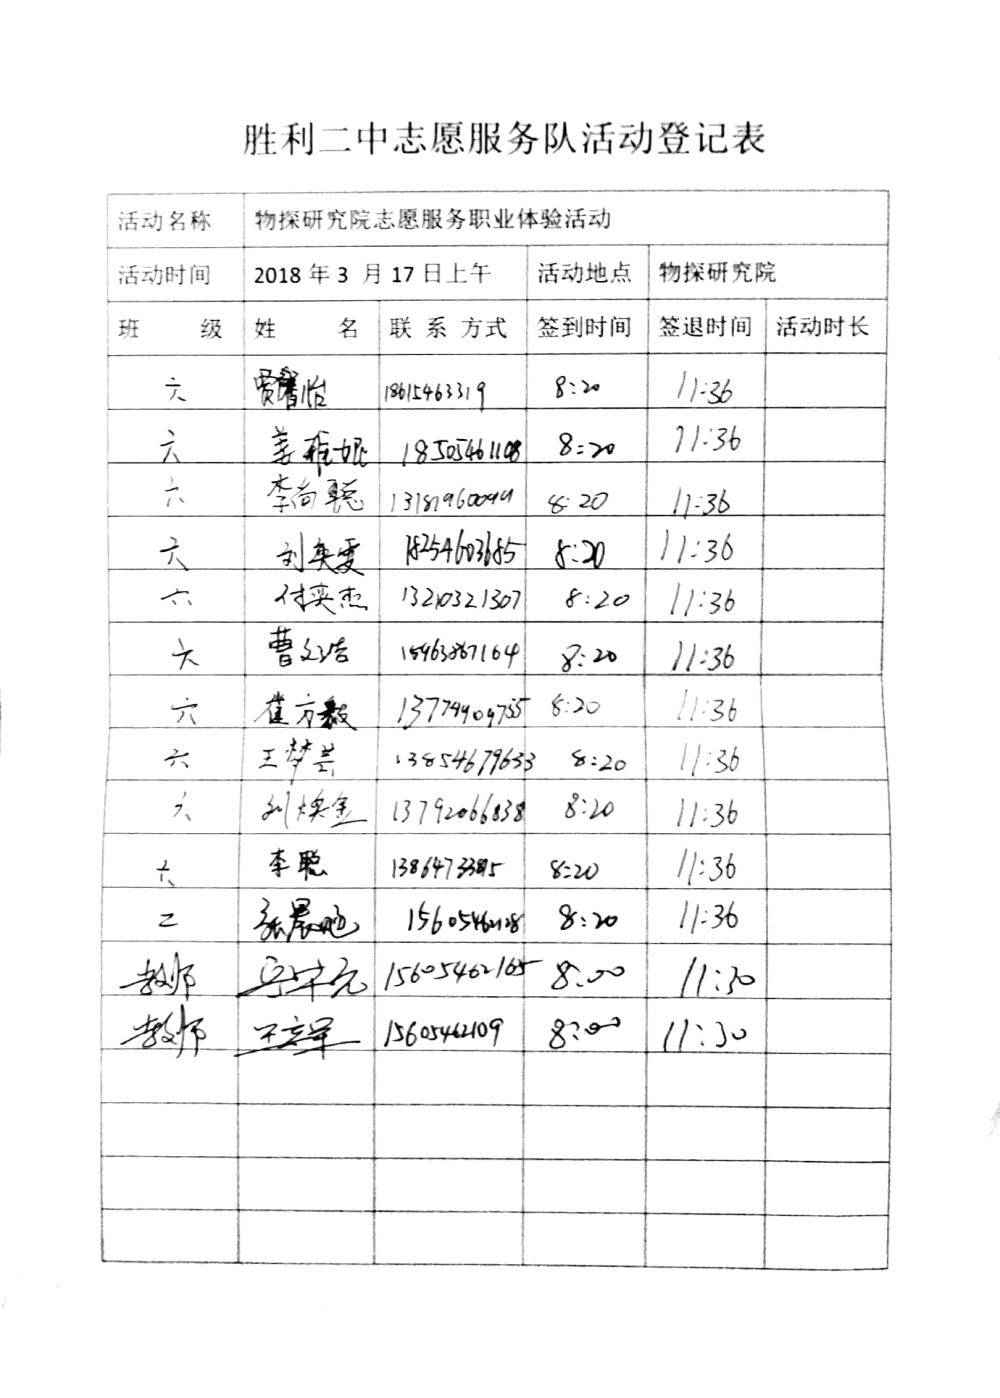 胜利二中志愿服务队活动登记表
活动名称 物探研究院志愿服务职业体验活动
活动时间 2018年3 月17日上午 活动地点 物探研究院
班 级 姓 名 联 系 方式 签到时间 签退时间 活动时长
六 18615463319 8:20 11:36
六 姜雅妮 18505461108 8:20 11:36
六 李尚聪 8:20 11:36
六 刘奕雯 18254603685 8:20 11:36
六 付奕杰 13210321307 8:20 11:36
六 曹文浩 15963867164 8:20 11:36
六 崔方毅 8:20 11:36
六 王梦芸 13854679633 8:20 11:36
六 刘焕金 13792066838 8:20 11:36
六 李聪 8:20 11:36
二 8:20 11:36
教师 15605462165 8:00 11:30
教师 15605462109 8:00 11:30